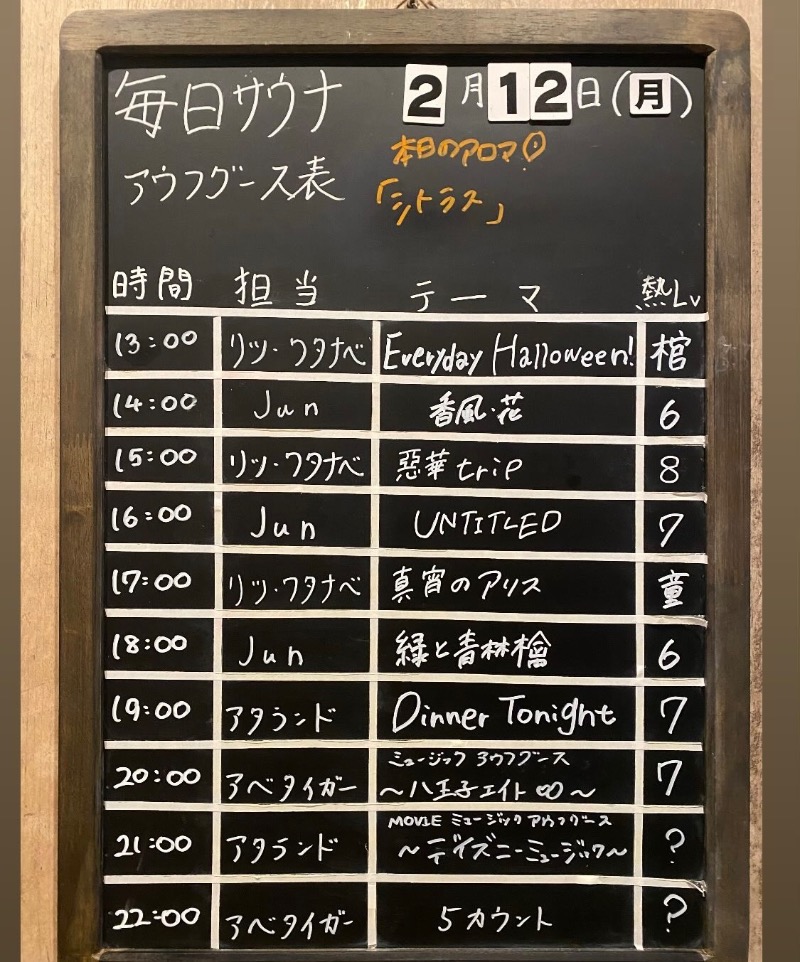 毎日サウナ 2月12日(月)
本日のアロマ
アウフグース表 「シトラス」
時間 担当 テーマ 熱Lv
13:00 リツ・ワタナベ Everyday Halloween! 棺
14:00 Jun 香風・花 6
15:00 リツ・ワタナベ 惡華trip 8
16:00 Jun UNTITLED 7
17:00 リツ・ワタナベ 真宵のアリス 童
18:00 Jun 緑と青林檎 6
19:00 アタランド Dinner Tonight 7
ミュージック アウフグース
20:00 アベタイガー 〜八王子エイト∞〜 7
MOVIE ミュージック アウフグース
21:00 アタランド 〜ディズニーミュージック〜 ?
22:00 アベタイガー 5カウント ?